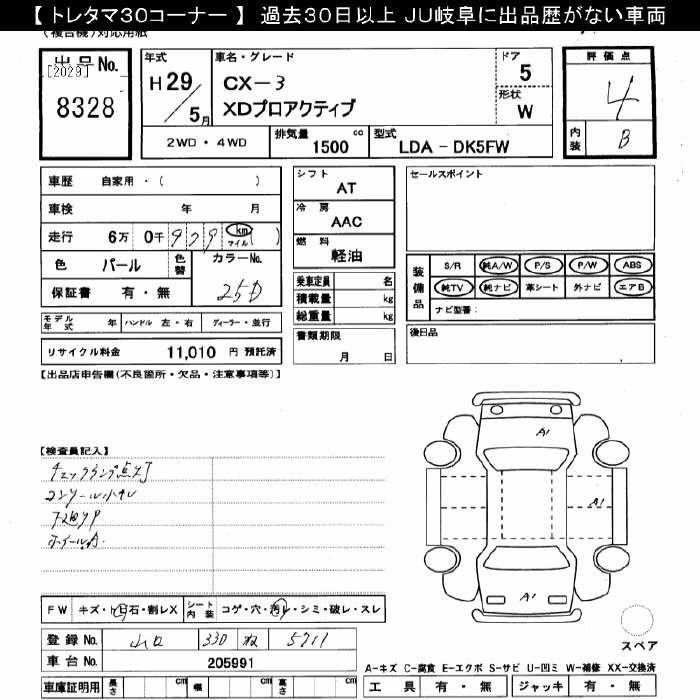 【 トレタマ30コーナー 】 過去30日以上 JU岐阜に出品歴がない車両
(複合機)対応用紙
出品No.
[2029]
8328
年式
H 29
5月
車名・グレード
CX-3
XDプロアクティブ
ドア
5
形状
W
2WD・4WD
排気量
1500 cc
型式
LDA - DK5FW
評価点
4
内装
B
車歴 自家用・( )
車検 年 月
走行 6万 0千 9 7 9 km マイル ( )
色 パール
色替
カラーNo.
25D
保証書 有・無
モデル年式 年 ハンドル 左・右 ディーラー・並行
リサイクル料金 11,010 円 預託済
シフト
AT
冷房
AAC
燃料
軽油
乗車定員 名
積載量 kg
総重量 kg
書類期限
月 日
セールスポイント
装備品
S/R 純A/W P/S P/W ABS
純TV 純ナビ 革シート 外ナビ エアB
ナビ型番:
後日品
【出品店申告欄(不良箇所・欠品・注意事項等)】
【検査員記入】
チェックランプ点灯
コンソール小キレ
ホイールA
A1
A1
A1
FW キズ・トビ石・割レX
シート内装 コゲ・穴・汚レ・シミ・破レ・スレ
登録No. 山口 330 ね 5711
車台No. 205991
車庫証明用 長さ cm 幅 cm 高さ cm
スペア
A-キズ C-腐食 E-エクボ S-サビ U-凹ミ W-補修 XX-交換済
工具 有・無 ジャッキ 有・無